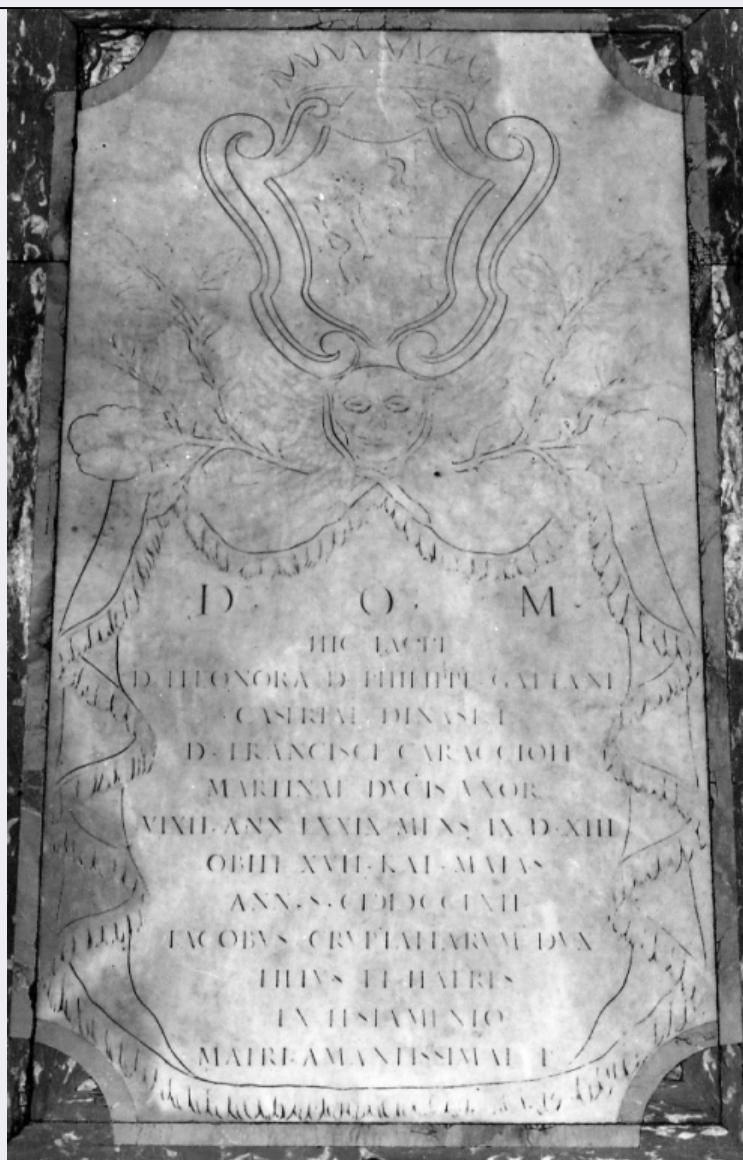 D · O · M ·
HIC IACET
D · ELEONORA · D · PHILIPPI · GAETANI
CASERTAE · DINASTAE
D · FRANCISCI · CARACCIOLI
MARTINAE DVCIS VXOR
VIXIT · ANN · LXXIX · MENS · IX · D · XIII
OBIIT · XVII · KAL · MAIAS
ANN · S · CIƆIƆCCLXII
IACOBVS · CRYPTALIARVM DVX
FILIVS ET HAERES
EX TESTAMENTO
MATRI · AMANTISSIMAE P